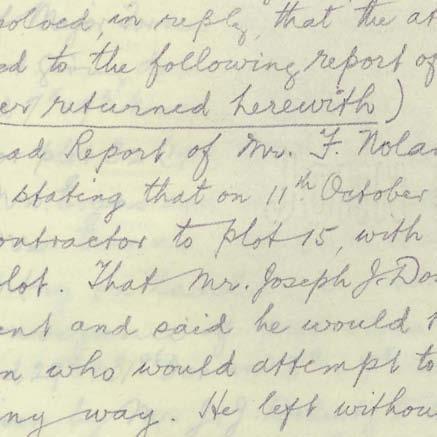 solved, in reply, that the at
ed to the following report of
er returned herewith)
ad Report of Mr. F. Nola
stating that on 11th October
ontractor to plot 15, with
lot. That Mr. Joseph J. Do
ent and said he would
n who would attempt to
ny way. He left withou